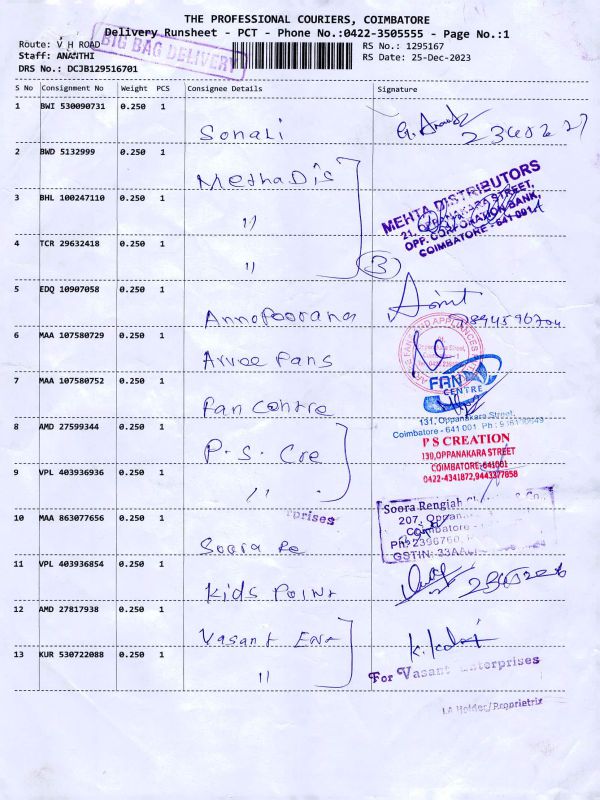 THE PROFESSIONAL COURIERS, COIMBATORE
Delivery Runsheet - PCT - Phone No.:0422-3505555 - Page No.:1
Route: V H ROAD
BIG BAG DELIVERY
RS No.: 1295167
Staff: ANANTHI
RS Date: 25-Dec-2023
DRS No.: DCJB129516701
S No Consignment No Weight PCS Consignee Details Signature
1 BWI 530090731 0.250 1
Sonali
2 BWD 5132999 0.250 1
Metha Dis
MEHTA DISTRIBUTORS
21, OPPANAKARA STREET,
OPP. CORPORATION BANK,
COIMBATORE - 641 001.
3 BHL 100247110 0.250 1
''
4 TCR 29632418 0.250 1
''
3
5 EDQ 10907058 0.250 1
Annapoorana
6 MAA 107580729 0.250 1
Arvee Fans
7 MAA 107580752 0.250 1
Fan Centre
FAN
CENTRE
131, Oppanakara Street,
Coimbatore - 641 001
8 AMD 27599344 0.250 1
P.S. Cre
P S CREATION
130,OPPANAKARA STREET
COIMBATORE-641001
0422-4341872,9443377858
9 VPL 403936936 0.250 1
''
prises
10 MAA 863077656 0.250 1
Soora Re
Soora Rengiah
207, Oppan
GSTIN: 33AA
11 VPL 403936854 0.250 1
Kids Point
12 AMD 27817938 0.250 1
Vasant Ent
13 KUR 530722088 0.250 1
''
For Vasant Enterprises
Proprietrix